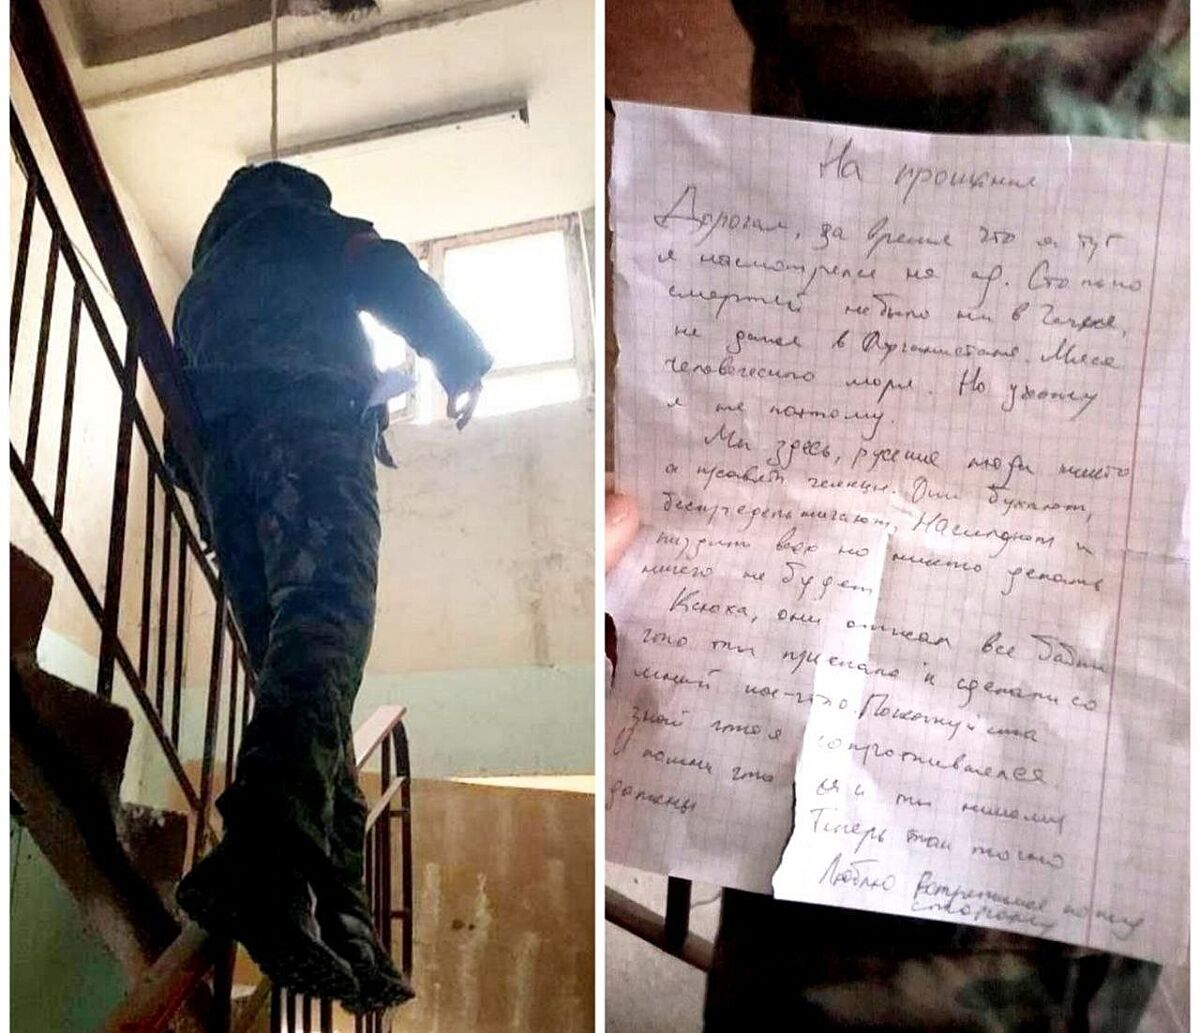 На прощания
Дорогая, за время что я тут
я насмотрелся на ад. Столько
смертей небыло ни в Чечне,
не даже в Афганистане. Мяса
человеческого море. Но ухожу
я не поэтому.
Мы здесь, русские люди никто
а правят чеченцы. Они бухают,
беспредельничают, Насилуют и
пиздят всех но никто делать
ничего не будет
Ксюха, они отжали все бабки
что ты прислала и сделали со
мной кое-что. Пожалуйста
знай что я сопротивлялся
И помни что я и ты никому
должны Теперь так точно
Люблю встретимся по ту
сторону